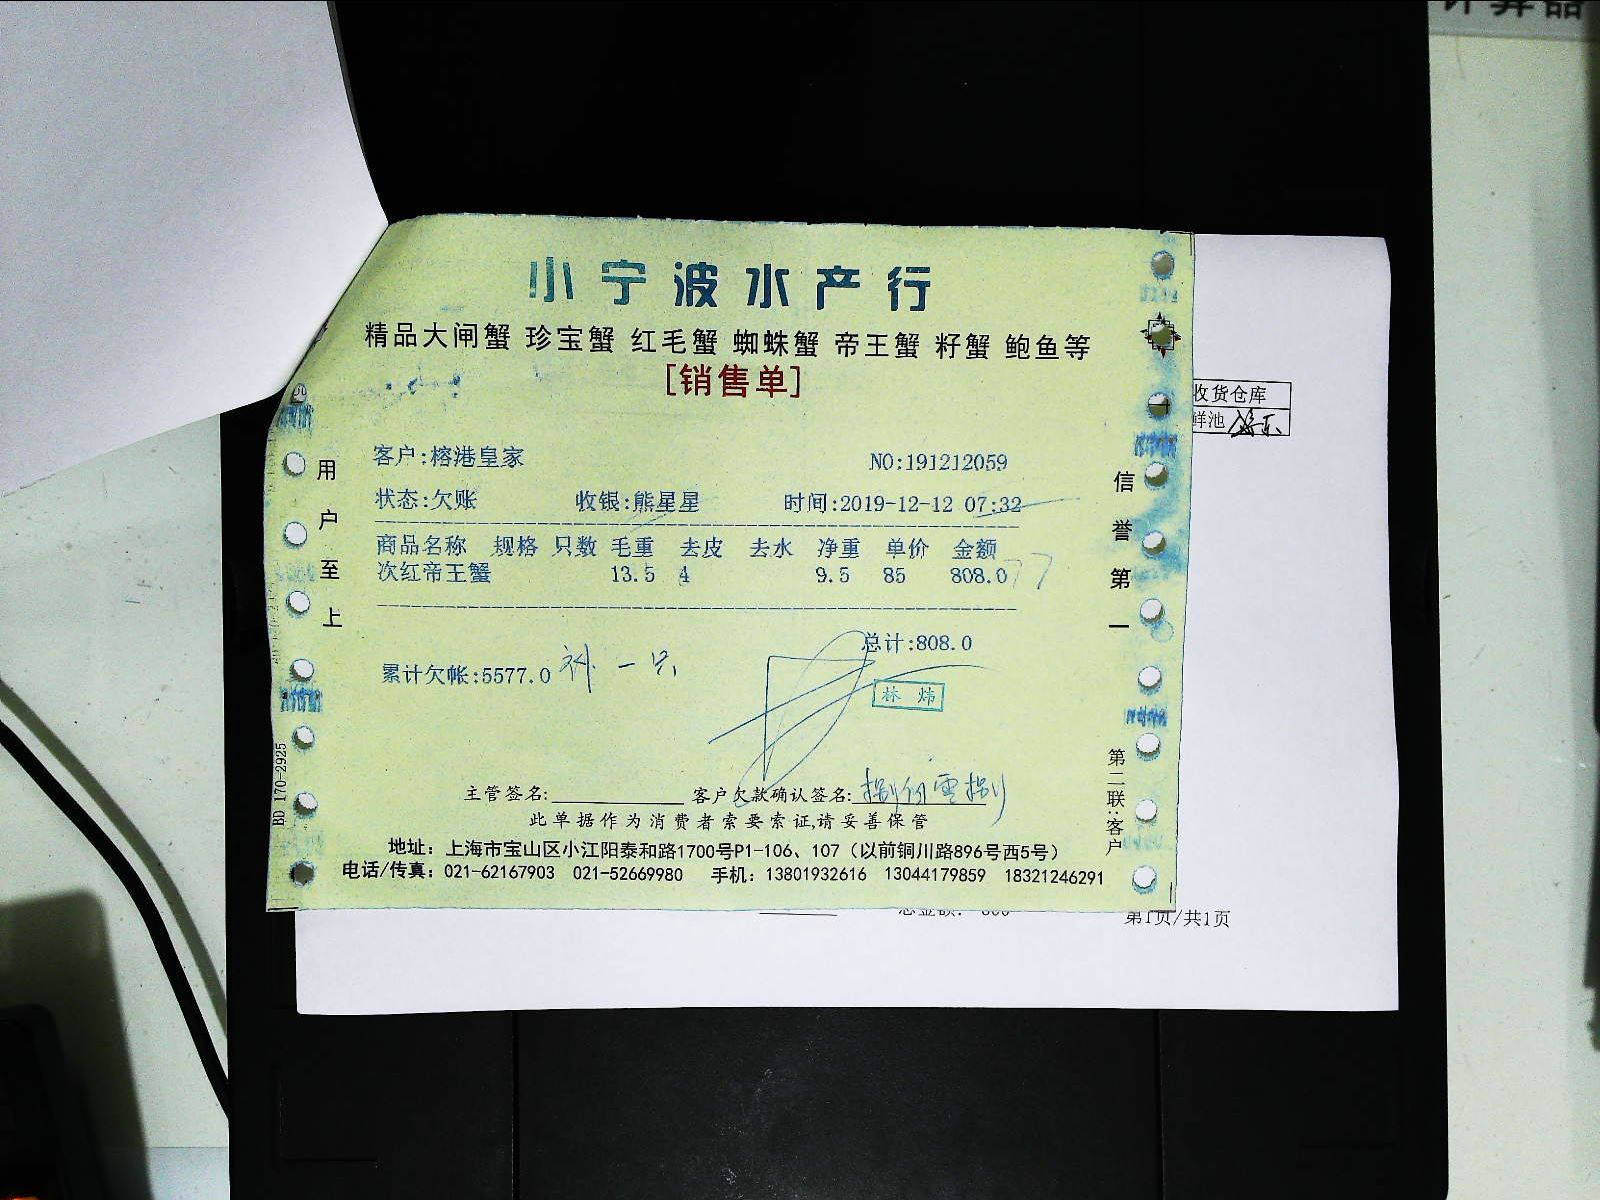 计算器
小宁波水产行
精品大闸蟹 珍宝蟹 红毛蟹 蜘蛛蟹 帝王蟹 籽蟹 鲍鱼等
[销售单]
收货仓库
鲜池
客户:榕港皇家 NO:191212059
状态:欠账 收银:熊星星 时间:2019-12-12 07:32
商品名称 规格 只数 毛重 去皮 去水 净重 单价 金额
次红帝王蟹 13.5 4 9.5 85 808.0
总计:808.0
累计欠帐:5577.0 补一只
林炜
用户至上
信誉第一
主管签名: 客户欠款确认签名:捌佰零捌
此单据作为消费者索要索证,请妥善保管
地址：上海市宝山区小江阳泰和路1700号P1-106、107（以前铜川路896号西5号）
电话/传真：021-62167903 021-52669980 手机：13801932616 13044179859 18321246291
BD 170-2925
第二联:客户
总金额:
第1页/共1页